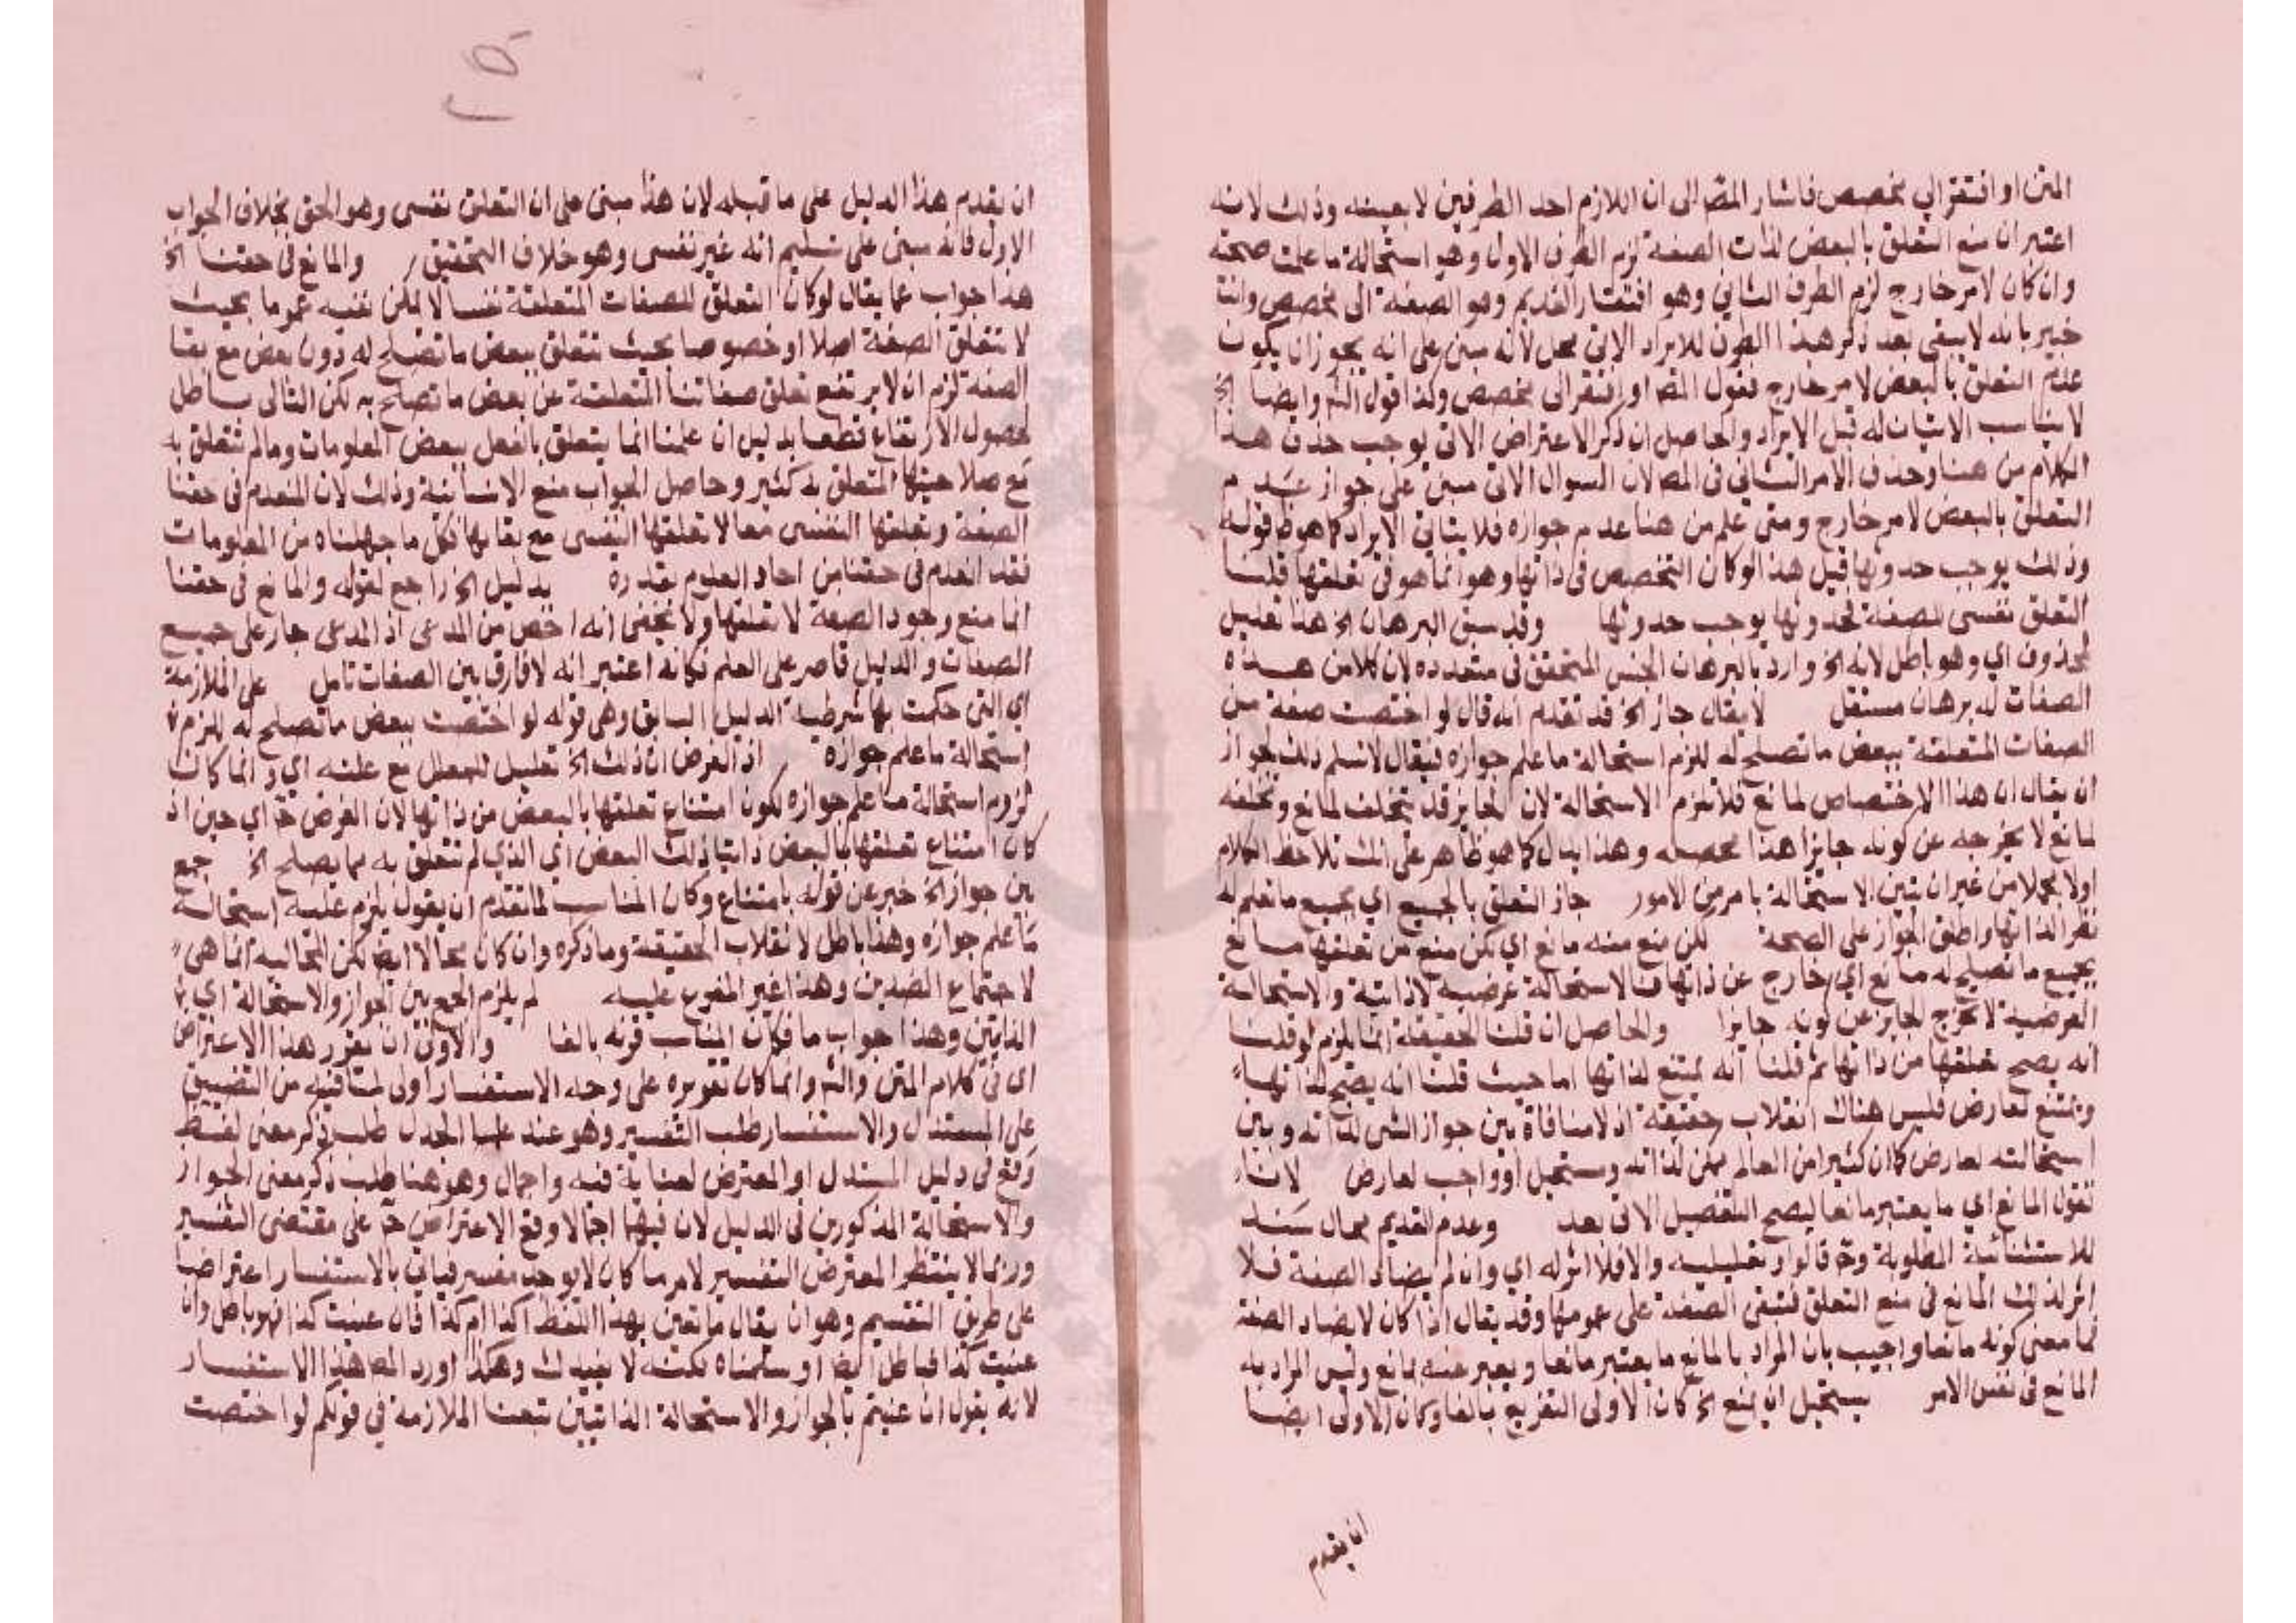 المتن او افتقر الي مخصص فاشار المصّ الى ان اللازم احد الطرفين لا بعينه وذلك لانه
اعتبر ان منع التعلق بالبعض لذات الصفة لزم الطرف الاول وهو استحالة ما علمت صحته
وان كان لامر خارج لزم الطرف الثاني وهو افتقار القديم وهو الصفة الى مخصص وانت
خبير بانه لا يبقى بعد ذكر هذا الطرف للايراد الاتي محل لانه مبني على انه يجوز ان يكون
عدم التعلق بالبعض لامر خارج فقول المصـ او افتقر الى مخصص وكذا قول الشـ وايضا الخ
لا يناسب الاتيان له قبل الايراد والحاصل ان ذكر الاعتراض الاتي يوجب حذف هذا
الكلام من هنا وحذف الامر الثاني في المصـ لان السوال الاتي مبني على جواز عدم
التعلق بالبعض لامر خارج ومتى علم من هنا عدم جوازه فلا يتاتى الايراد كما هو ظ قوله
وذلك يوجب حدوثها قيل هذا لو كان التخصيص في ذاتها وهو انما هو في تعلقها قلنا
التعلق نفسي للصفة فحدوثها يوجب حدوثها وقد سبق البرهان الخ هذا تعليل
لمحذوف اي وهو باطل لانه الخ واراد بالبرهان الجنس المتحقق في متعدده لان كلا من هذه
الصفات له برهان مستقل لا يقال جاز الخ قد تقدم انه قال لو اختصت صفة من
الصفات المتعلقة ببعض ما تصلح له للزم استحالة ما علم جوازه فيقال لا نسلم ذلك لجواز
ان يقال ان هذا الاختصاص لمانع فلا تلزم الاستحالة لان الجايز قد يتخلف لمانع وتخلفه
لمانع لا يخرجه عن كونه جايزا هذا محصله وهذا ايراد كما هو ظاهر على انك تلاحظ الكلام
اولا مجملا من غير ان تبين الاستحالة بامر من الامور جاز التعلق بالجميع اي بجميع ما تعلم له
نظر الذاتها واطلق الجواز على الصحة لكن منع منه مانع اي لكن منع من تعلقها
بجميع ما تصلح له مانع اي خارج عن ذاتها فالاستحالة عرضية لا ذاتية والاستحالة
العرضية لا تخرج الجايز عن كونه جايزا والحاصل ان قلب الحقيقة انما يلزم لو قلنا
انه يصح تعلقها من ذاتها ثم قلنا انه يمتنع لذاتها اما حيث قلنا انه يصح لذاتها
ويمتنع لعارض فليس هناك انقلاب حقيقة اذ لا منافاة بين جواز الشي لذاته وبين
استحالته لعارض كما ان كثيرا من العالم ممكن لذاته ومستحيل او واجب لعارض لانا
نقول المانع اي ما يعتبر مانعا ليصح التفصيل الاتي بعد وعدم القديم محال سند
للاستثنائية المطلوبة وقالوا وتعليلية والا فلا اثر له اي وان لم يضاد الصفة فلا
اثر لذلك المانع في منع التعلق فتبقى الصفة على عمومها وقد يقال اذا كان لا يضاد الصفة
فما معنى كونه مانعا واجيب بان المراد بالمانع ما يعتبر مانعا ويعبر عنه بمانع وليس المراد به
المانع في نفس الامر يستحيل ان يمنع الخ كان الاولى التفريع بالفا وكان الاولى ايضا
ان يقدم
ان يقدم هذا الدليل على ما قبله لان هذا مبني على ان التعلق نفسي وهو الحق بخلاف الجواب
الاول فانه مبني على تسليم انه غير نفسي وهو خلاف التحقيق والمانع في حقنا الخ
هذا جواب عما يقال لو كان التعلق للصفات المتعلقة نفسيا لا يمكن نفيه عموما بحيث
لا تتعلق الصفة اصلا او خصوصا بحيث تتعلق ببعض ما تصلح له دون بعض مع بقا
الصفة لزم ان لا يرتفع تعلق صفاتنا المتعلقة عن بعض ما تصلح به لكن التالى باطل
لحصول الارتفاع قطعا بدليل ان علمنا انما يتعلق بالفعل ببعض المعلومات وما لم تتعلق به
مع صلاحيتها المتعلق به كثير وحاصل الجواب منع الاستثنائية وذلك لان المنعدم في حقنا
الصفة وتعلقها النفسي معا لا تعلقها النفسي مع بقايها فكل ما جهلناه من المعلومات
فقد انعدم في حقنا من احاد العلوم بقدره بدليل الخ راجع لقوله والمانع في حقنا
انما منع وجود الصفة لا تعلقها ولا يخفى انه اخص من المدعى اذ المدعى جار على جميع
الصفات والدليل قاصر على العلم فكانه اعتبر انه لا فارق بين الصفات تامل على الملازمة
اي التي حكمت بها شرطية الدليل السابق وهي قوله لو اختصت ببعض ما تصلح له للزم
استحالة ما علم جوازه اذ الغرض ان ذلك الخ تعليل للمعلل مع علته اي وانما كان
لزوم استحالة ما علم جوازه لكون امتناع تعلقها بالبعض من ذاتها لان الغرض حـ اي حين اذ
كان امتناع تعلقها بالبعض ذاتيا ذلك البعض اي الذي لم تتعلق به مما يصلح الخ جمع
بين جواز الخ خبر عن قوله بامتناع وكان المناسب لما تقدم ان يقول يلزم عليه استحالة
ما علم جوازه وهذا باطل لانقلاب الحقيقة وما ذكره وان كان محالا ايضا لكن المحالية انما هي
لاجتماع الضدين وهذا غير المفرع عليه لم يلزم الجمع بين الجواز والاستحالة اي
الذاتين وهذا جواب ما فكان المناسب قرنه بالفا والاولى ان يقرر هذا الاعتراض
اي في كلام المتن والشـ وانما كان تقريره على وجه الاستفسار اولى لما فيه من التضييق
على المستدل والاستفسار طلب التفسير وهو عند علما الجدل طلب ذكر معنى لفظ
وقع في دليل المستدل او المعترض لغرابة فيه واجمال وهو هنا طلب ذكر معنى الجواز
والاستحالة المذكورين في الدليل لان فيهما اجمالا وقع الاعتراض حـ على مقتضى التفسير
وربما لا ينتظر المعترض التفسير لامر ما كان لا يوجد مفسر فياتي بالاستفسار اعتراضا
على طريق التقسيم وهو ان يقال ما تعين بهذا اللفظ اكذا ام كذا فان عنيت كذا فهو باطل وان
عنيت كذا فباطل ايضا او سلمناه لكنه لا يفيدك وهكذا اورد المصـ هذا الاستفسار
لانه يقول ان عنيتم بالجواز والاستحالة الذاتيين منعنا الملازمة في قولكم لو اختصت